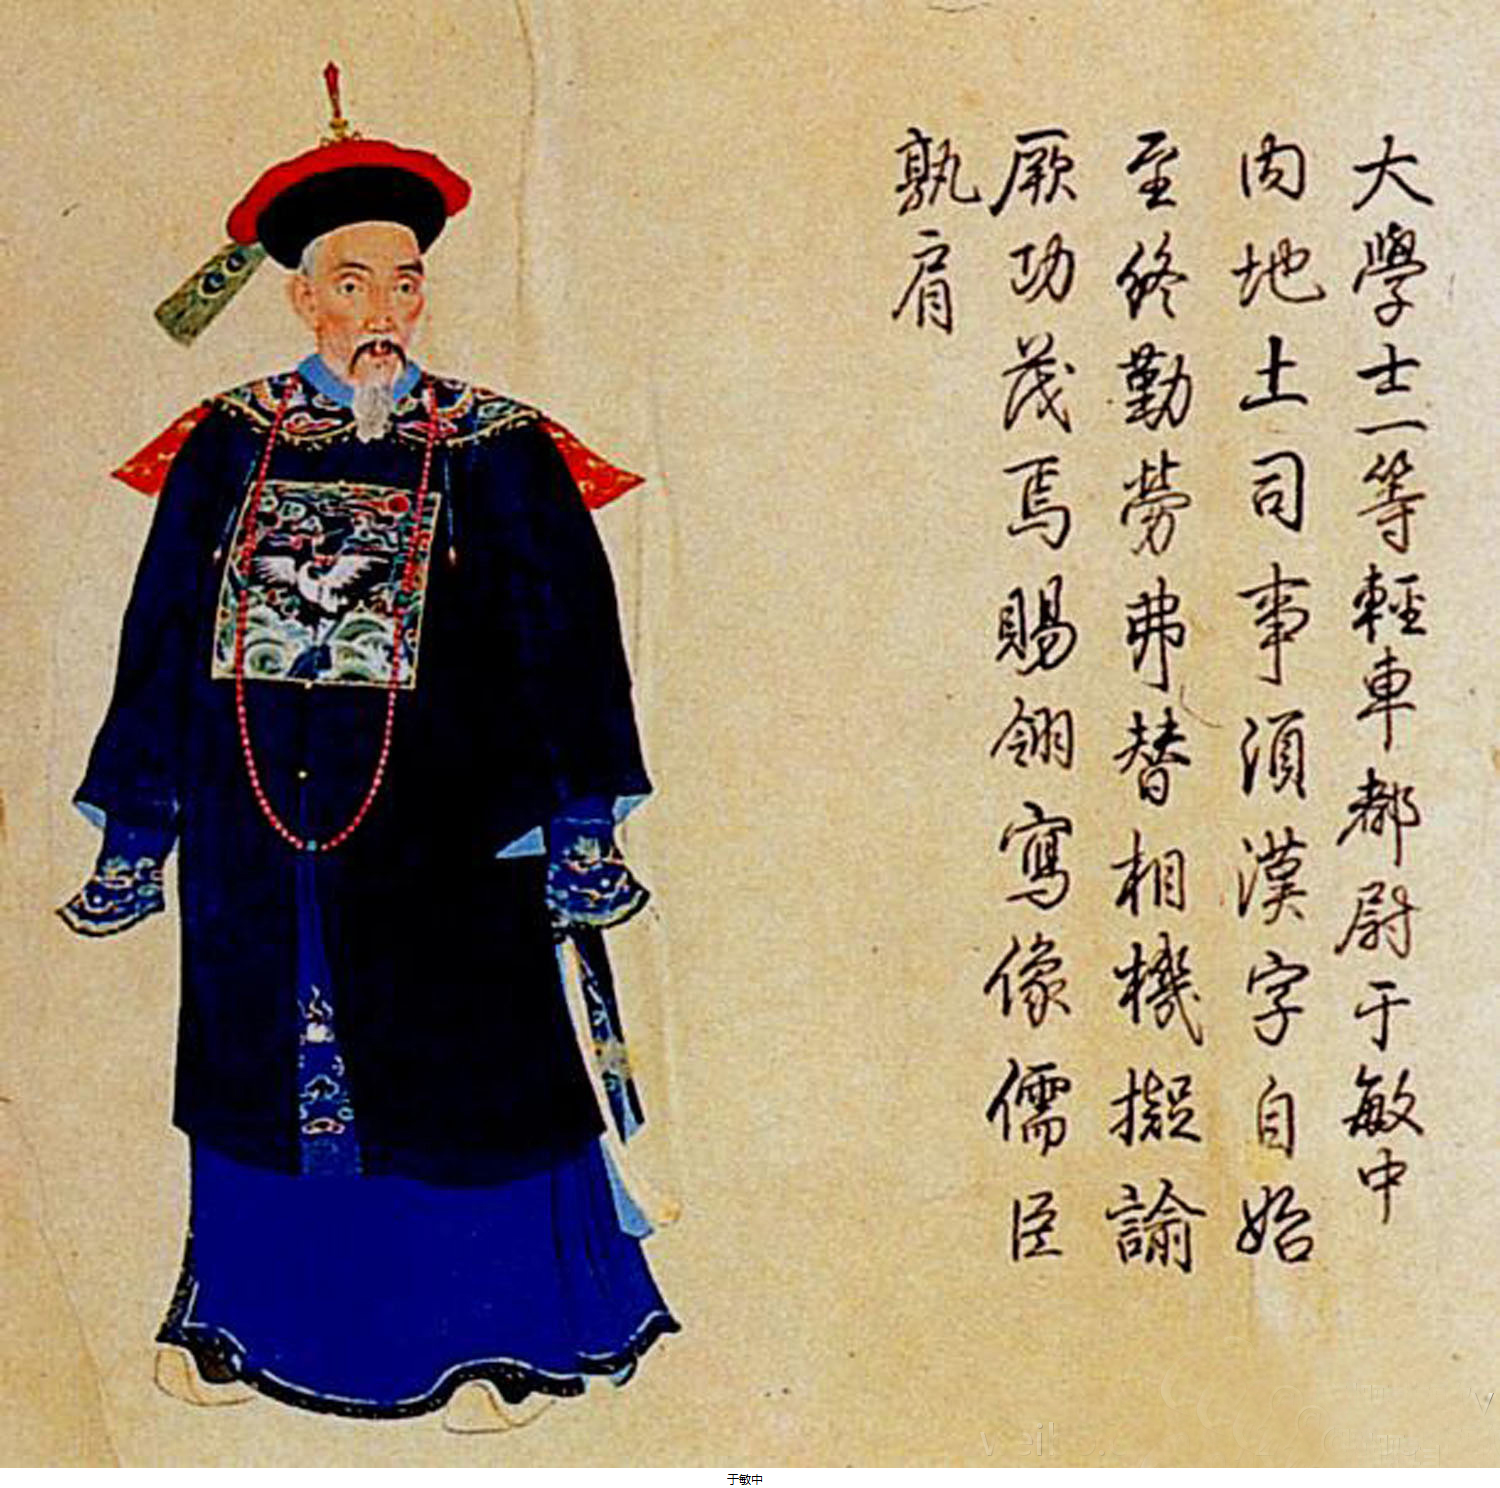 大學士一等輕車都尉于敏中
內地土司事須漢字自始
至終勤勞弗替相機擬諭
厥功茂焉賜翎寫像儒臣
孰肩
于敏中